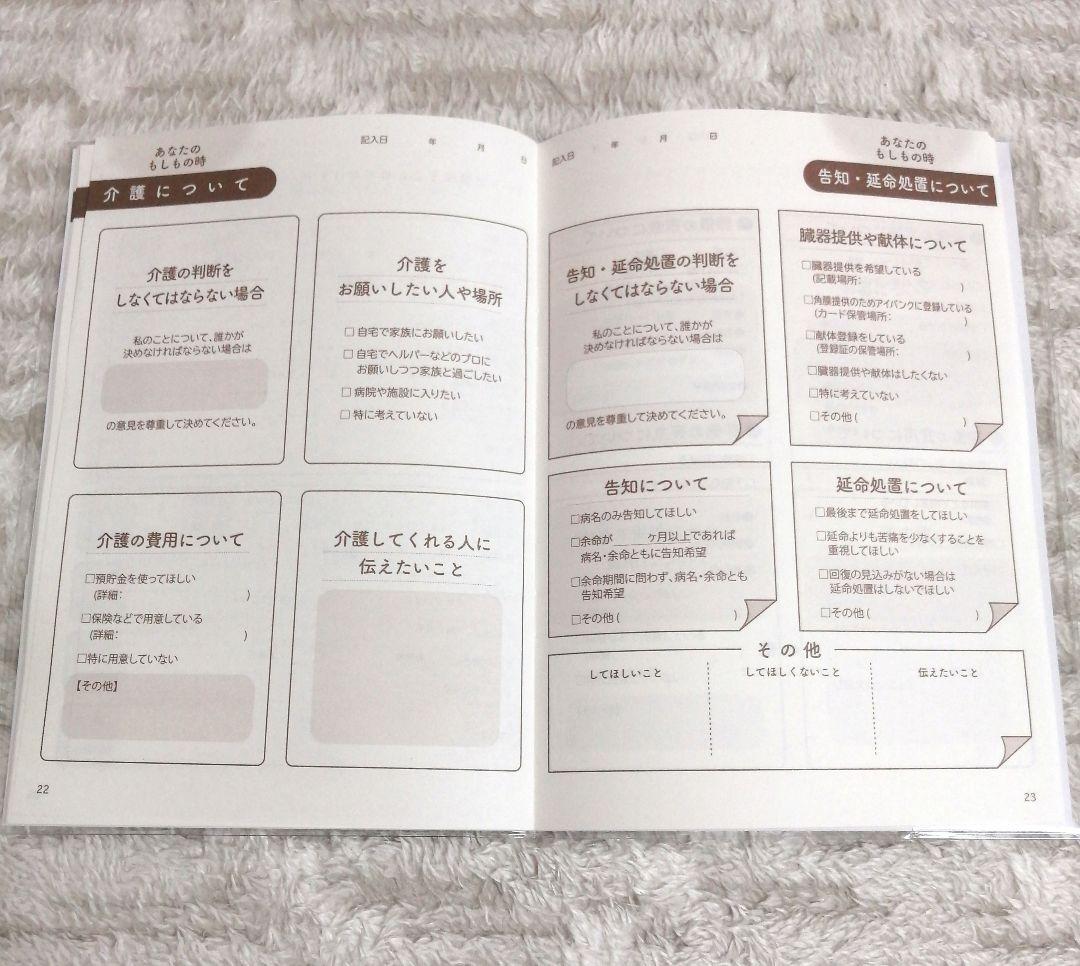 あなたの
もしもの時
記入日　年　月　日
介護について
介護の判断を
しなくてはならない場合
私のことについて、誰かが
決めなければならない場合は
の意見を尊重して決めてください。
介護を
お願いしたい人や場所
□ 自宅で家族にお願いしたい
□ 自宅でヘルパーなどのプロに
お願いしつつ家族と過ごしたい
□ 病院や施設に入りたい
□ 特に考えていない
介護の費用について
□預貯金を使ってほしい
(詳細:　)
□保険などで用意している
(詳細:　)
□特に用意していない
【その他】
介護してくれる人に
伝えたいこと
22
記入日　年　月　日
あなたの
もしもの時
告知・延命処置について
告知・延命処置の判断を
しなくてはならない場合
私のことについて、誰かが
決めなければならない場合は
の意見を尊重して決めてください。
臓器提供や献体について
□臓器提供を希望している
(記載場所:　)
□角膜提供のためアイバンクに登録している
(カード保管場所:　)
□献体登録をしている
(登録証の保管場所:　)
□臓器提供や献体はしたくない
□特に考えていない
□その他 (　)
告知について
□病名のみ告知してほしい
□余命が　ヶ月以上であれば
病名・余命ともに告知希望
□余命期間に問わず、病名・余命とも
告知希望
□その他 (　)
延命処置について
□最後まで延命処置をしてほしい
□延命よりも苦痛を少なくすることを
重視してほしい
□回復の見込みがない場合は
延命処置はしないでほしい
□その他 (　)
その他
してほしいこと
してほしくないこと
伝えたいこと
23